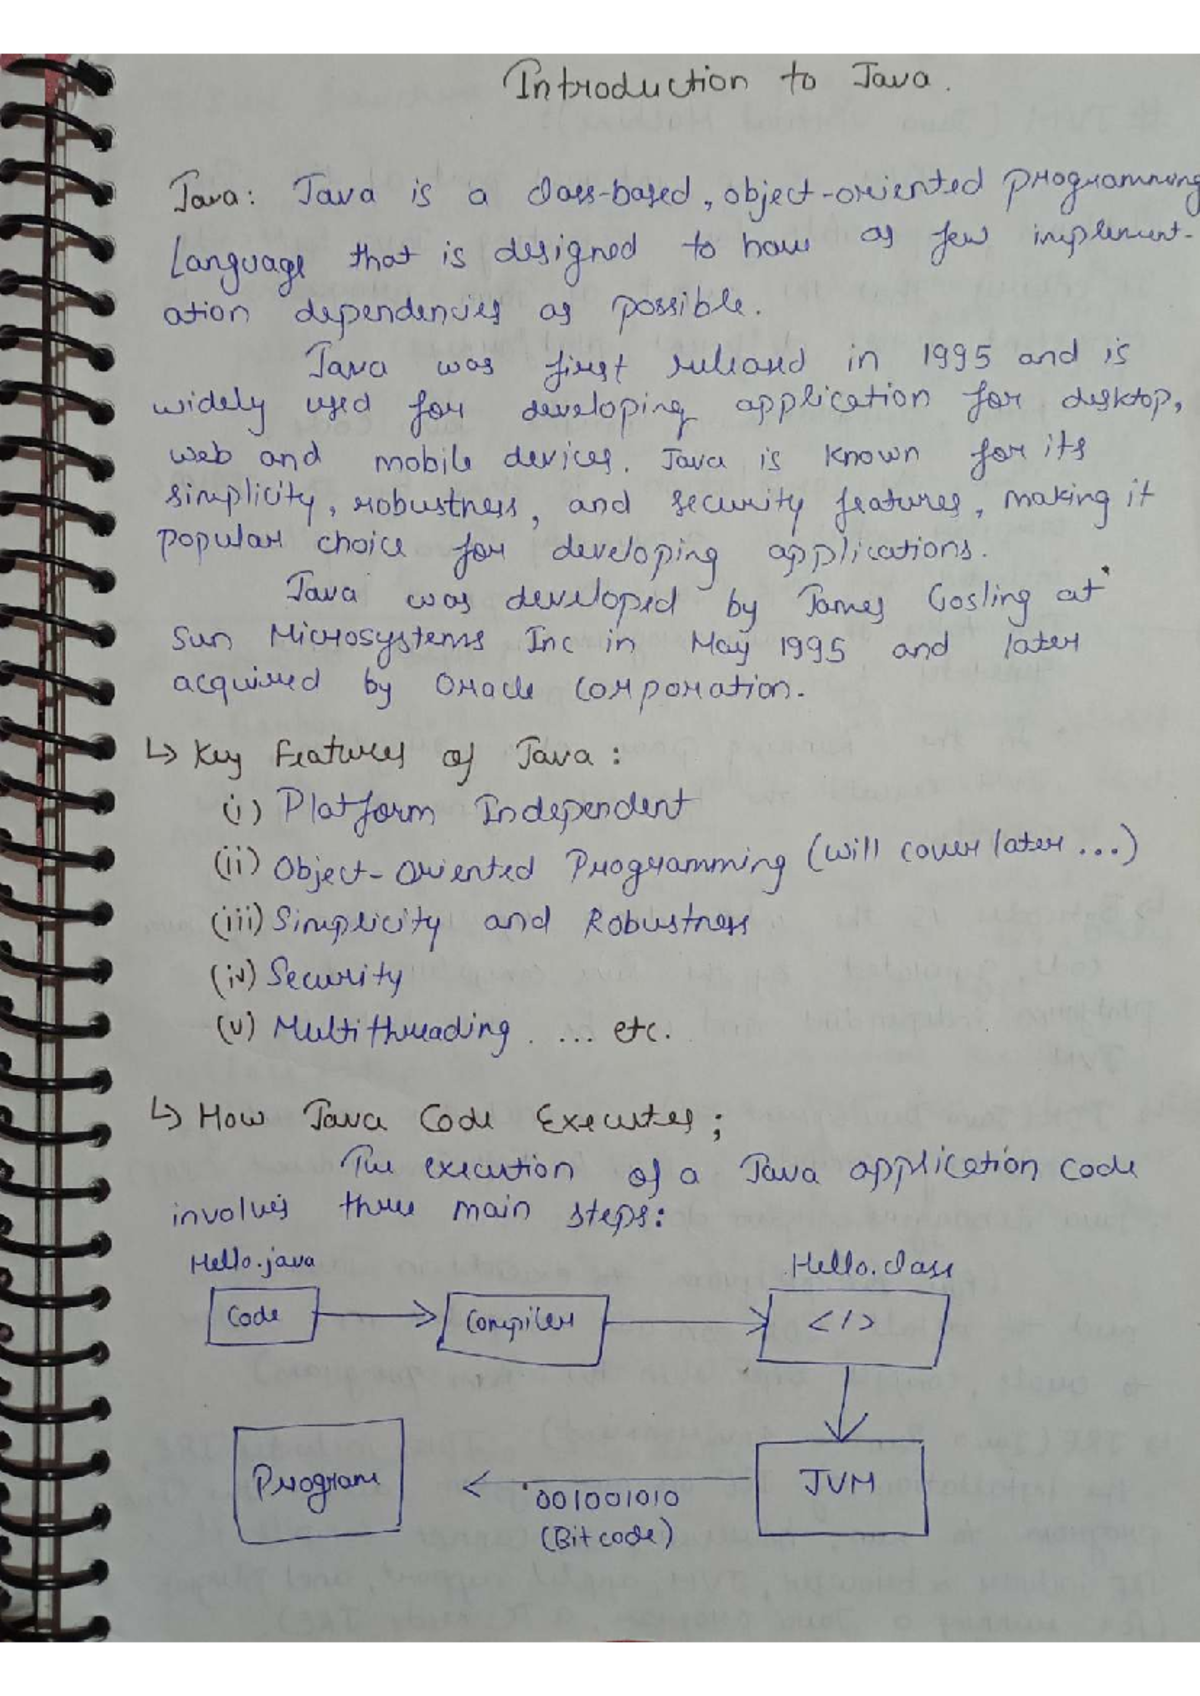 Introduction to Java.
Java: Java is a class-based, object-oriented programming
Language that is designed to have as few implement-
ation dependencies as possible.
Java was first released in 1995 and is
widely used for developing application for desktop,
web and mobile devices. Java is known for its
simplicity, robustness, and security features, making it
popular choice for developing applications.
Java was developed by James Gosling at
Sun Microsystems Inc in May 1995 and later
acquired by Oracle Corporation.
↳ Key Features of Java :
(i) Platform Independent
(ii) Object-Oriented Programming (will cover later ...)
(iii) Simplicity and Robustness
(iv) Security
(v) Multithreading . ... etc.
↳ How Java Code Executes ;
The execution of a Java application code
involves three main steps:
Hello.java Hello.class
Code Compiler </>
Program JVM
001001010
(Bit code)